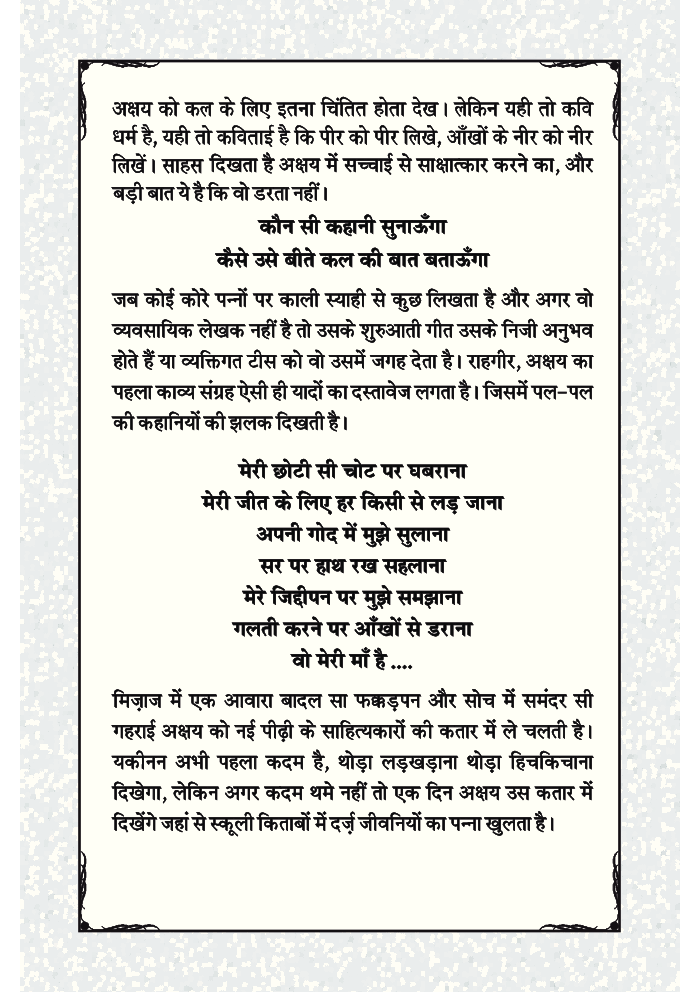 अक्षय को कल के लिए इतना चिंतित होता देख। लेकिन यही तो कवि
धर्म है, यही तो कविताई है कि पीर को पीर लिखे, आँखों के नीर को नीर
लिखें। साहस दिखता है अक्षय में सच्चाई से साक्षात्कार करने का, और
बड़ी बात ये है कि वो डरता नहीं।
कौन सी कहानी सुनाऊँगा
कैसे उसे बीते कल की बात बताऊँगा
जब कोई कोरे पन्नों पर काली स्याही से कुछ लिखता है और अगर वो
व्यवसायिक लेखक नहीं है तो उसके शुरुआती गीत उसके निजी अनुभव
होते हैं या व्यक्तिगत टीस को वो उसमें जगह देता है। राहगीर, अक्षय का
पहला काव्य संग्रह ऐसी ही यादों का दस्तावेज लगता है। जिसमें पल-पल
की कहानियों की झलक दिखती है।
मेरी छोटी सी चोट पर घबराना
मेरी जीत के लिए हर किसी से लड़ जाना
अपनी गोद में मुझे सुलाना
सर पर हाथ रख सहलाना
मेरे जिद्दीपन पर मुझे समझाना
गलती करने पर आँखों से डराना
वो मेरी माँ है ....
मिज़ाज में एक आवारा बादल सा फक्कड़पन और सोच में समंदर सी
गहराई अक्षय को नई पीढ़ी के साहित्यकारों की कतार में ले चलती है।
यकीनन अभी पहला कदम है, थोड़ा लड़खड़ाना थोड़ा हिचकिचाना
दिखेगा, लेकिन अगर कदम थमे नहीं तो एक दिन अक्षय उस कतार में
दिखेंगे जहां से स्कूली किताबों में दर्ज़ जीवनियों का पन्ना खुलता है।